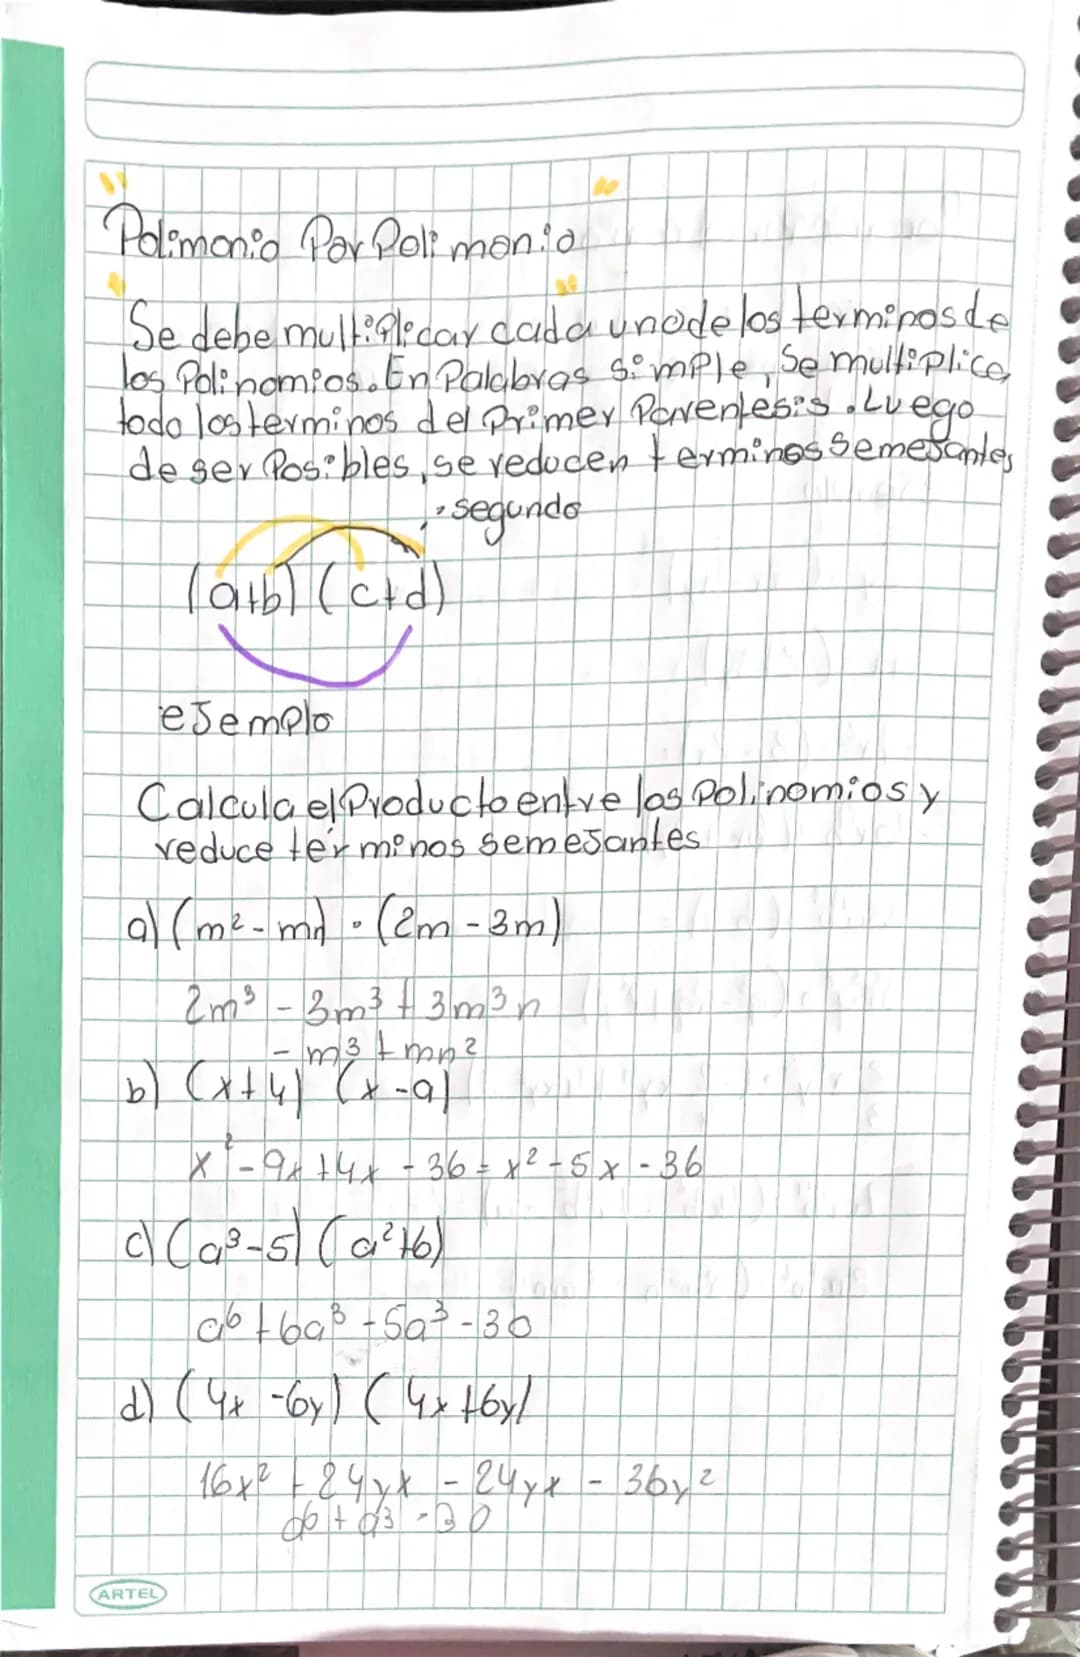 Polimonio Por Polimonio
Se debe multiplicar cada uno de los terminos de
los Polinomios. En Palabras simple, Se multiplica
todo los terminos del Primer Parentesis. Luego
de ser Posibles, se reducen terminos Semejantes
segundo
(a+b) (c+d)
ejemplo
Calcula el Producto entre los Polinomios y
reduce términos semejantes
a) (m² - m) · (2m - 3m)
2m³ - 3m³ + 3m³n
- m³ + mn²
b) (x+4) (x-9)
x² - 9x + 4x - 36 = x² - 5x - 36
c) (a³-5) (a²+6)
a6 + 6a³ + 5a³ - 30
d) (4x - 6y) (4x + 6y)
16x² + 24yx - 24yx - 36y²
a6 + a3 - 30
ARTEL